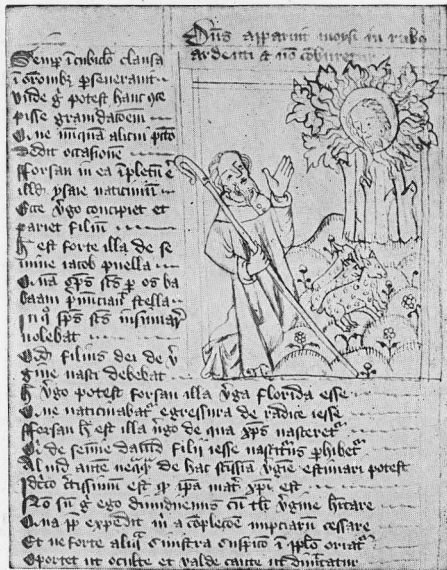 Dns apparuit moysi in rubo
ardenti & nō cōburet
Semp ī cubiclo clausa
ī oroībȝ pseuerauit
Vnde g̅ potest hanc cōce
pisse grauidatōem
Q̄ nūquā alicui pctō
dedit occasionē
Fforsan in ea īpletū ē
illd ysaie vaticiniū
Ecce v̾go concipiet et
pariet filiū
h̄ est forte illa de se
mine iacob puella
Q̄nā sps scs p os ba
laam stella
sps scs insinuar̄
uolebat
Qd filius dei de v̾
gine nasti debebat
h̄ v̾go potest forsan illa v̾ga florida esse
Q̄ ne vaticinabat̾ egressura de radice iesse
Fforsan h̄ est illa v̾go de qua xp̄s nasceret̾
Q̾ de semīe dauid filii iesse nasciturus phibet̾
Aliud ante neq̄ de hac v̾gīe estimari potest
Idcō c̾tissimū est q ipa mat̾ xpi est
Nō sū g̅ ego dignus cū tli v̾gine hitare
Q̄ma expedit m̄ a copleōe nupciarū cessare
Et ne forte aliq̄ sinistra suspicio ī pplo oriat̾
Oportet ut occulte et valde caute dimittatur